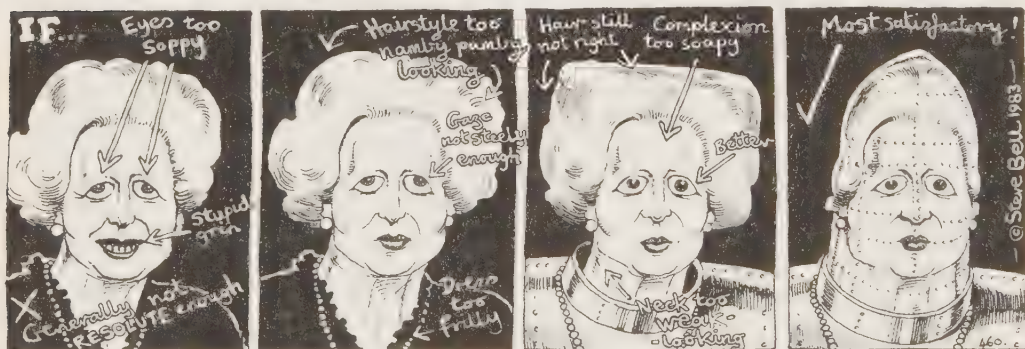 IF...
Eyes too
soppy
stupid
grin
X
Generally not
RESOLUTE enough
Hairstyle too
namby pamby
looking
Gaze
not steely
enough
Dress
too
frilly
Hair still
not right
Complexion
too soapy
Better
Neck too
weak
-looking
Most satisfactory!
460.
—©Steve Bell 1983—